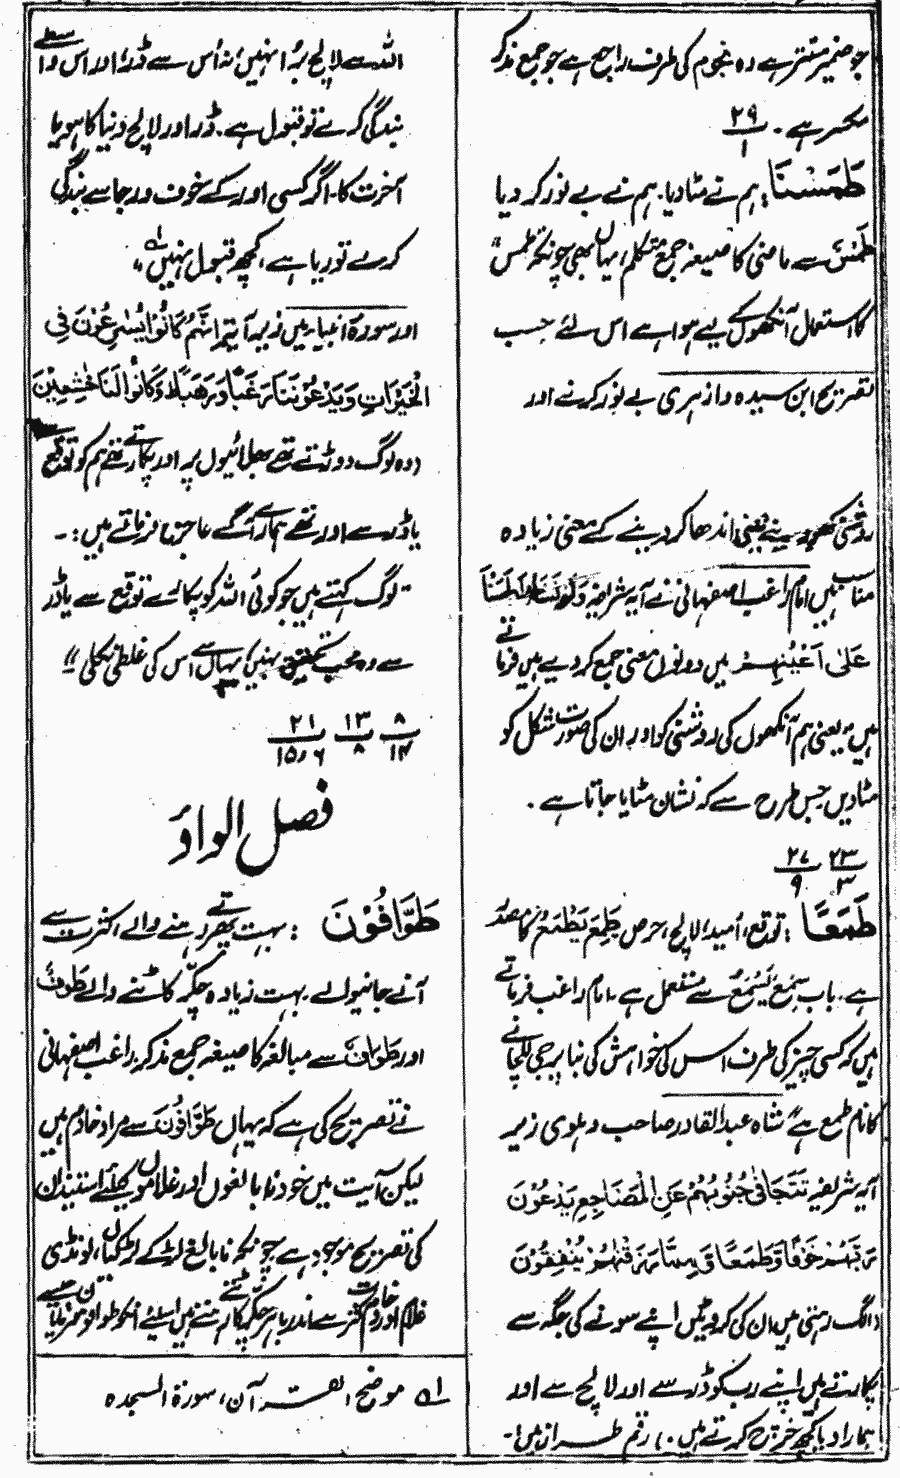 جو ضمیر مستتر ہے وہ نجوم کی طرف راجع ہے جو جمع مذکر
مکسر ہے۔ ۲۹/۱
طَمَسْنَا: ہم نے مٹا دیا۔ ہم نے بے نور کر دیا
طَمْسٌ سے ماضی کا صیغہ جمع متکلم، یہاں بھی چونکہ طمس
کا استعمال آنکھوں کے لیے ہوا ہے اس لئے حسب
تصریح ابن سیدہ و ازہری بے نور کرنے اور
روشنی کھو دینے یعنی اندھا کر دینے کے معنی زیادہ
مناسب ہیں امام راغب اصفہانی نے آیہ شریفہ وَلَوْ نَشَاءُ لَطَمَسْنَا
عَلٰى اَعْيُنِهِمْ میں دونوں معنی جمع کر دیے ہیں فرماتے
ہیں "یعنی ہم آنکھوں کی روشنی کو اور ان کی صورت شکل کو
مٹا دیں جس طرح سے کہ نشان مٹایا جاتا ہے۔
۲۳/۳ ۲۷/۹
طَمَعًا: توقع، امید، لالچ، حرص طَمِعَ يَطْمَعُ کا مصدر
ہے۔ باب سَمِعَ يَسْمَعُ سے مستعمل ہے۔ امام راغب فرماتے
ہیں کہ کسی چیز کی طرف اس کی خواہش کی بنا پر جی للچانے
کا نام طمع ہے شاہ عبدالقادر صاحب دہلوی زیر
آیہ شریفہ تَتَجَافٰى جُنُوْبُهُمْ عَنِ الْمَضَاجِعِ يَدْعُوْنَ
رَبَّهُمْ خَوْفًا وَّطَمَعًا وَّمِمَّا رَزَقْنٰهُمْ يُنْفِقُوْنَ
(الگ رہتی ہیں ان کی کروٹیں اپنے سونے کی جگہ سے
پکارتے ہیں اپنے رب کو ڈر سے اور لالچ سے اور
ہمارا دیا کچھ خرچ کرتے ہیں۔) رقم طراز ہیں:۔
اللہ سے لالچ برا نہیں نہ اُس سے ڈر، اور اس واسطے
بندگی کرے تو قبول ہے۔ ڈر اور لالچ دنیا کا ہو یا
آخرت کا۔ اگر کسی اور کے خوف و رجا سے بندگی
کرے تو ریا ہے، کچھ قبول نہیں"۔ لہ
اور سورۃ انبیاء میں زیر آیۃ اِنَّهُمْ كَانُوْا يُسٰرِعُوْنَ فِي
الْخَيْرَاتِ وَيَدْعُوْنَنَا رَغَبًا وَّرَهَبًا وَكَانُوْا لَنَا خٰشِعِيْنَ
(وہ لوگ دوڑتے تھے بھلائیوں پر اور پکارتے تھے ہم کو توقع سے
یا ڈر سے اور تھے ہمارے آگے عاجز) فرماتے ہیں:۔
"لوگ کہتے ہیں جو کوئی اللہ کو پکارے توقع سے یا ڈر
سے وہ محب تحقیق نہیں، یہاں سے اس کی غلطی نکلی"
۸/۱۴ ۱۳/۸ ۲۱/۱۵، ۶
فصل الواو
طَوَّافُوْنَ: بہت پھرنے والے، اکثرت سے
آنے جانیوالے۔ بہت زیادہ چکر کاٹنے والے طَوْفٌ
اور طَوَافٌ سے مبالغہ کا صیغہ جمع مذکر۔ راغب اصفہانی
نے تصریح کی ہے کہ یہاں طَوَّافُوْنَ سے مراد خادم ہیں
لیکن آیت میں خود نابالغوں اور غلاموں کیلئے استیذان
کی تصریح موجود ہے چونکہ نابالغ لڑکے لڑکیاں، لونڈی
غلام اور خادم کثرت سے اندر باہر چکر کاٹتے رہتے ہیں اسلئے انکو طوافون فرمایا
لہ موضح القرآن، سورۃ السجدہ